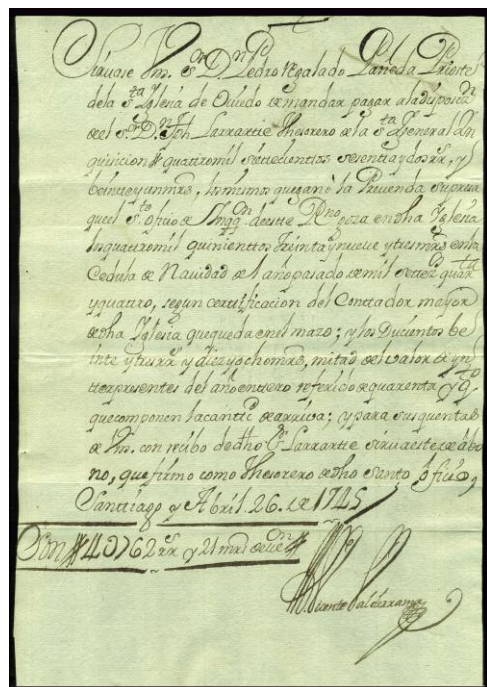 Sirvase Vm. Sr. Dn. Pedro Regalado Pañeda Prioste
de la Sta. Iglesia de Oviedo de mandar pagar a la disposicn.
de el Sr. Dn. Jph. Larrartie Thesorero de la Sta. General In
quisicion quatromil settecientos sesenta y dos rrs. y
beinte y un mrs. los mismos que ganò la Prevenda supresa
que el Sto. oficio de Inqqn. de este Rno. goza en dha Iglesia
los quatromil quinientos treinta y nueve y tres mrs. en la
Cedula de Navidad de el año pasado de mil settez. quarta.
y quatro, segun certificacion del Contador mayor
de dha Iglesia que queda en el mazo; y los Ducientos be
inte y tres rrs. y diez y ocho mrs. mitad de el valor de
terpresentes del año entero referido de quarenta y qto.
que componen la cantt. de arriva; y para sus quentas
de Vm. con recibo de dho Sr. Larrartie sirva este de abo
no, que firmo como Thesorero de dho Santo oficio,
Santiago y Abril. 26. de 1745
Son 4U762 rrs. y 21 mrs. de vn.
Vicente Valderrama